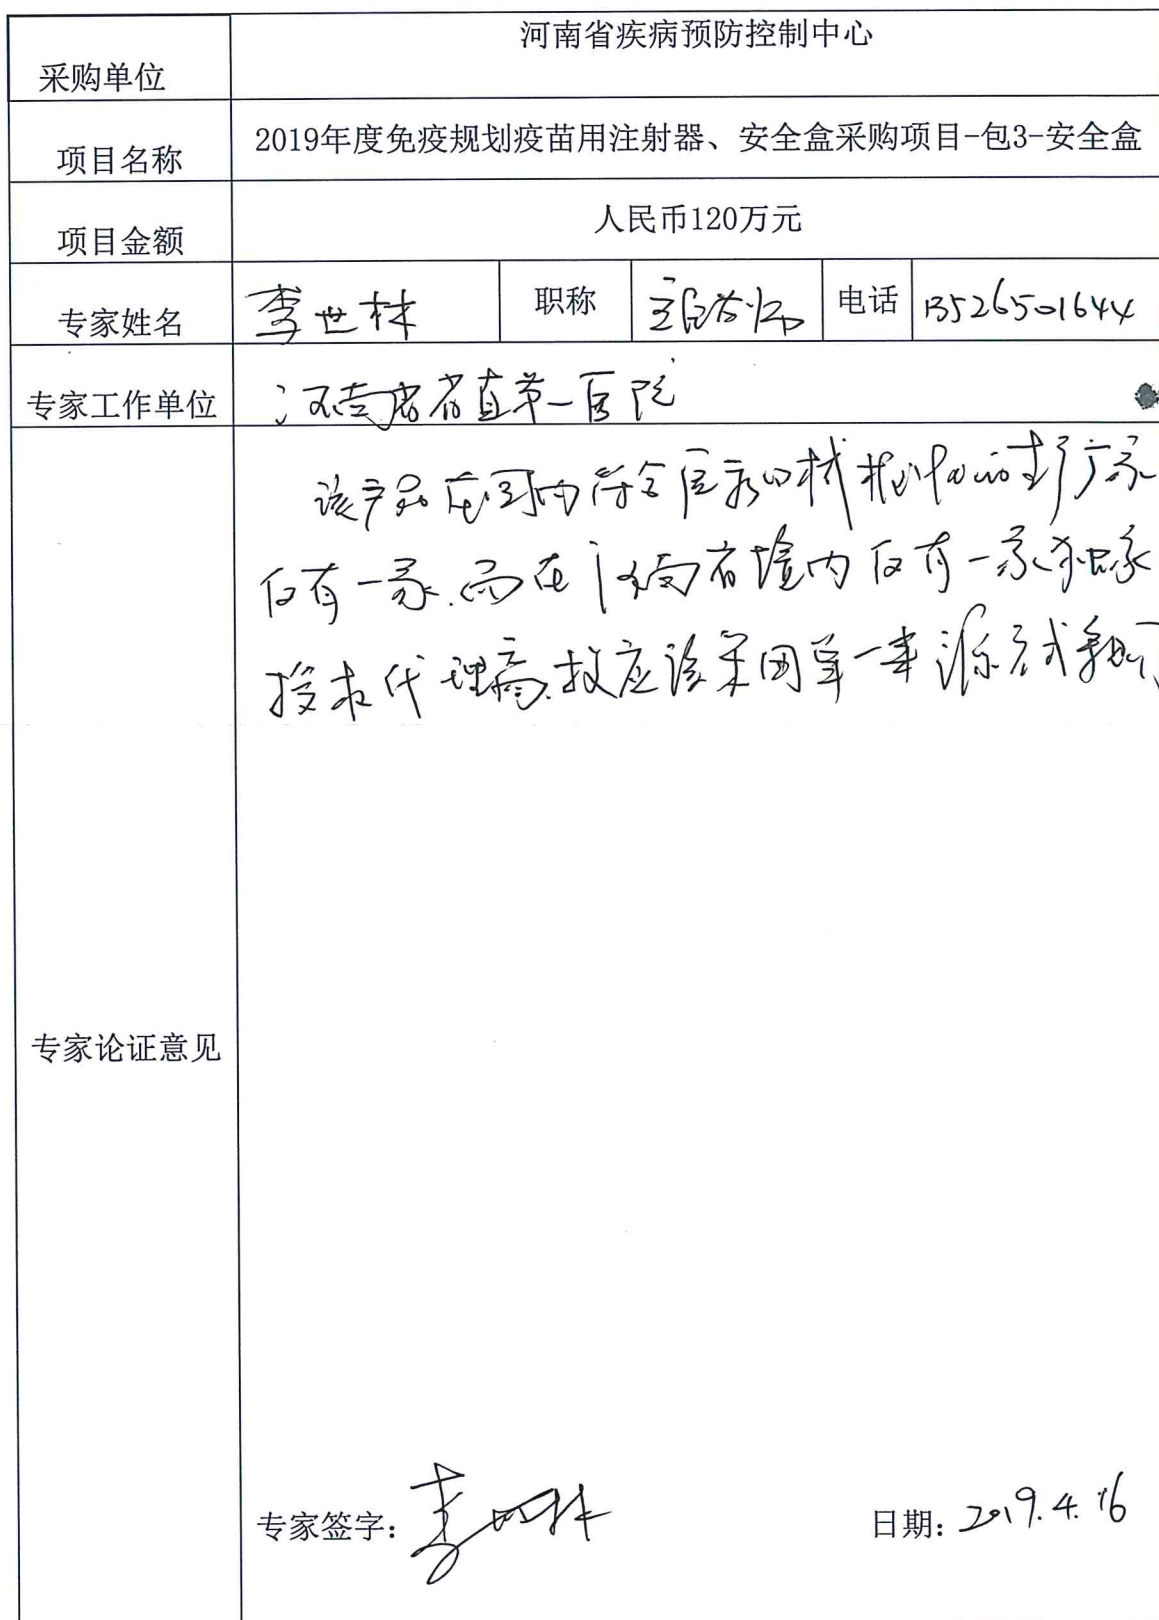 河南省疾病预防控制中心
采购单位
项目名称 2019年度免疫规划疫苗用注射器、安全盒采购项目-包3-安全盒
项目金额 人民币120万元
专家姓名 李世林 职称 主管药师 电话 13526501644
专家工作单位 河南省省直第一医院
该产品在国内符合医疗的材料的生产厂家
仅有一家.而在河南省境内仅有一家独家
授权代理商.故应该采用单一来源方式
专家论证意见
专家签字: 李世林 日期: 2019.4.16